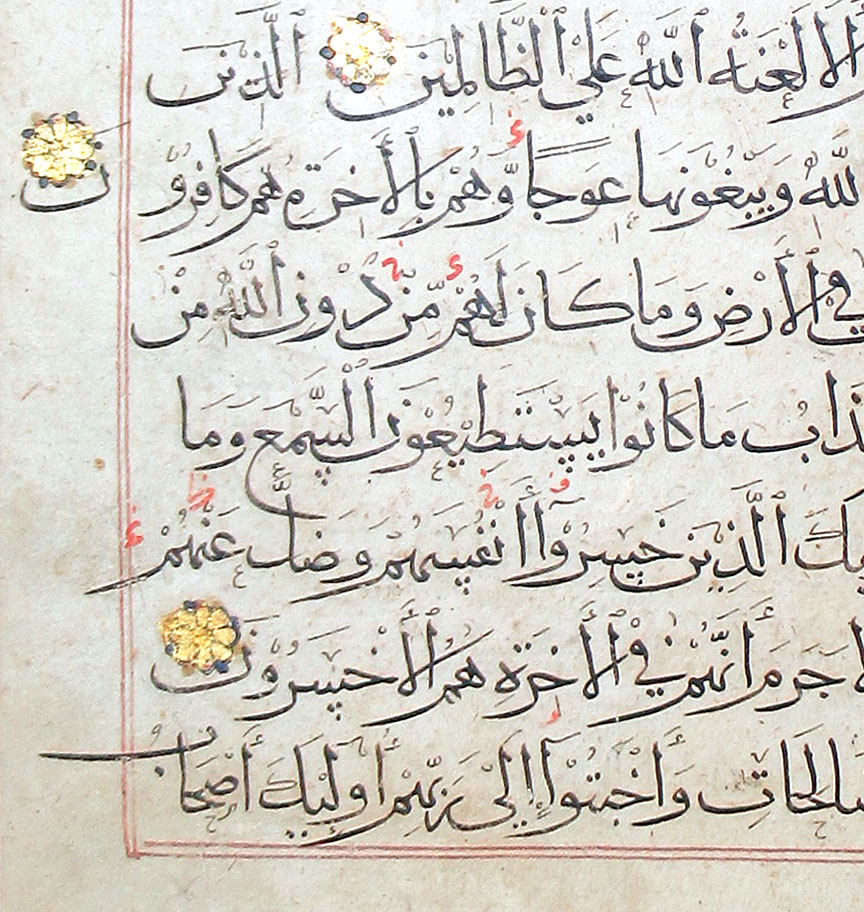 أَلَا لَعْنَةُ اللَّهِ عَلَى الظَّالِمِينَ الَّذِينَ
اللَّهِ وَيَبْغُونَهَا عِوَجًا وَّهُمْ بِالْأَخِرَةِ هُمْ كَافِرُونَ
فِي الْأَرْضِ وَمَا كَانَ لَهُمْ مِّنْ دُونِ اللَّهِ مِنْ
الْعَذَابُ مَا كَانُوا يَسْتَطِيعُونَ السَّمْعَ وَمَا
الَّذِينَ خَسِرُوٓا أَنْفُسَهُمْ وَضَلَّ عَنْهُمْ
لَا جَرَمَ أَنَّهُمْ فِي الْأَخِرَةِ هُمُ الْأَخْسَرُونَ
الصَّالِحَاتِ وَأَخْبَتُوٓا إِلَى رَبِّهِمْ أُولَٰئِكَ أَصْحَابُ